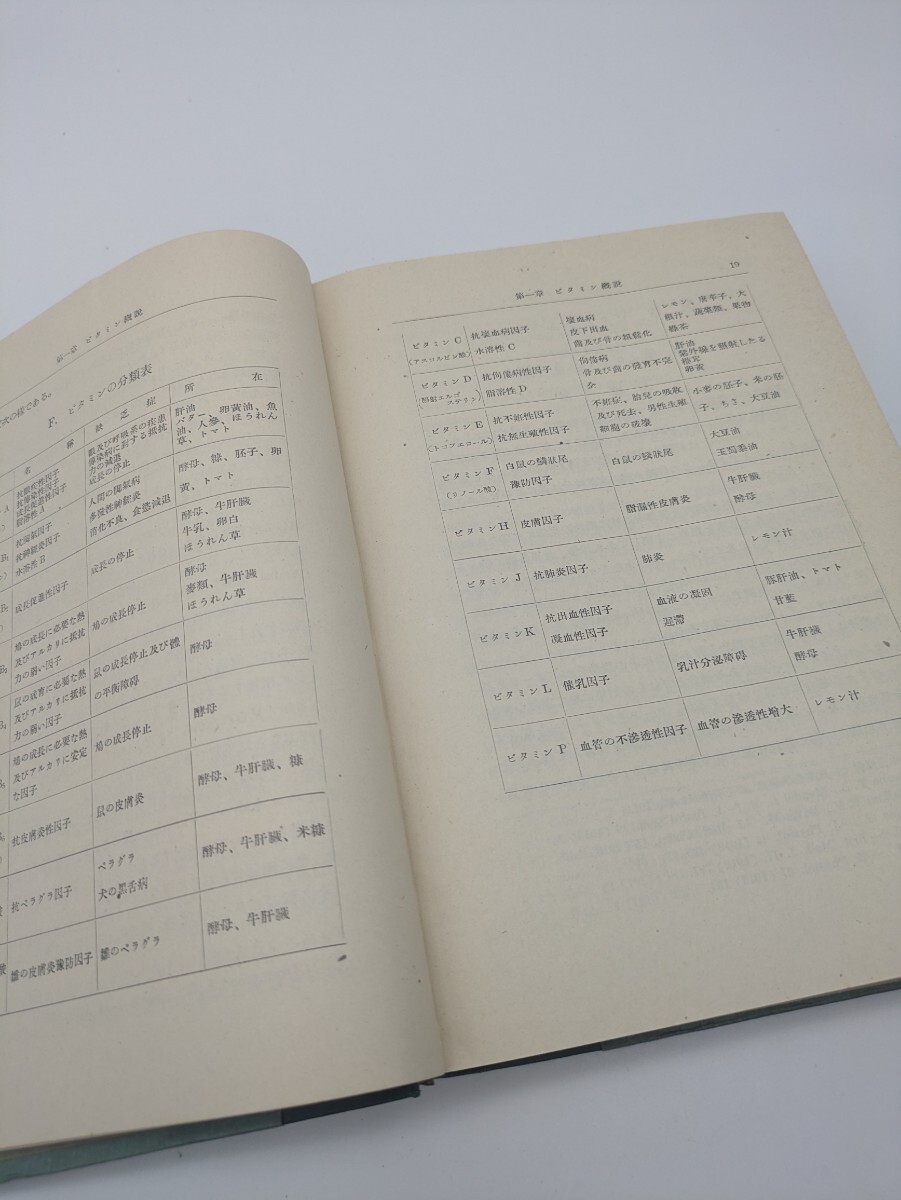 第一章 ビタミン概説
次の様である。
F. ビタミンの分類表
名 称 缺乏症 所 在
A
抗眼疾性因子
抗傳染性因子
成長促進性因子
脂溶性A
眼及び呼吸系の疾患
傳染病に對する抵抗
力の減退
成長の停止
肝油
バター、卵黄油、魚
油、人參、ほうれん
草、トマト
抗脚氣因子
抗神經炎因子
水溶性B
人間の脚氣病
多發性神經炎
消化不良、食慾減退
酵母、糠、胚子、卵
黄、トマト
成長促進性因子
成長の停止
酵母、牛肝臓
牛乳、卵白
ほうれん草
鳩の成長に必要な熱
及びアルカリに抵抗
力の弱い因子
鳩の成長停止
酵母
麥類、牛肝臓
ほうれん草
鼠の成育に必要な熱
及びアルカリに抵抗
力の弱い因子
鼠の成長停止及び體
の平衡障碍
酵母
鳩の成長に必要な熱
及びアルカリに安定
な因子
鳩の成長停止
酵母
抗皮膚炎性因子
鼠の皮膚炎
酵母、牛肝臓、糠
抗ペラグラ因子
ペラグラ
犬の黒舌病
酵母、牛肝臓、米糠
雛の皮膚炎豫防因子
雛のペラグラ
酵母、牛肝臓
第一章 ビタミン概説
19
ビタミンC
(アスコルビン酸)
抗壊血病因子
水溶性C
壊血病
皮下出血
齒及び骨の粗鬆化
レモン、唐辛子、大
根汁、蔬菜類、果物
綠茶
ビタミンD
(照射エルゴ
ステリン)
抗佝僂病性因子
脂溶性D
佝僂病
骨及び齒の發育不完
全
肝油
紫外線を照射したる
椎茸
卵黄
ビタミンE
(トコフエロール)
抗不姙性因子
抗無生殖性因子
不姙症、胎兒の吸收
及び死去、男性生殖
細胞の破壊
小麥の胚子、米の胚
子、ちさ、大豆油
ビタミンF
(リノール酸)
白鼠の鱗狀尾
豫防因子
白鼠の鱗狀尾
大豆油
玉蜀黍油
ビタミンH
皮膚因子
脂漏性皮膚炎
牛肝臓
酵母
ビタミンJ
抗肺炎因子
肺炎
レモン汁
ビタミンK
抗出血性因子
凝血性因子
血液の凝固
遲滯
豚肝油、トマト
甘藍
ビタミンL
催乳因子
乳汁分泌障碍
牛肝臓
酵母
ビタミンP
血管の不滲透性因子
血管の滲透性增大
レモン汁